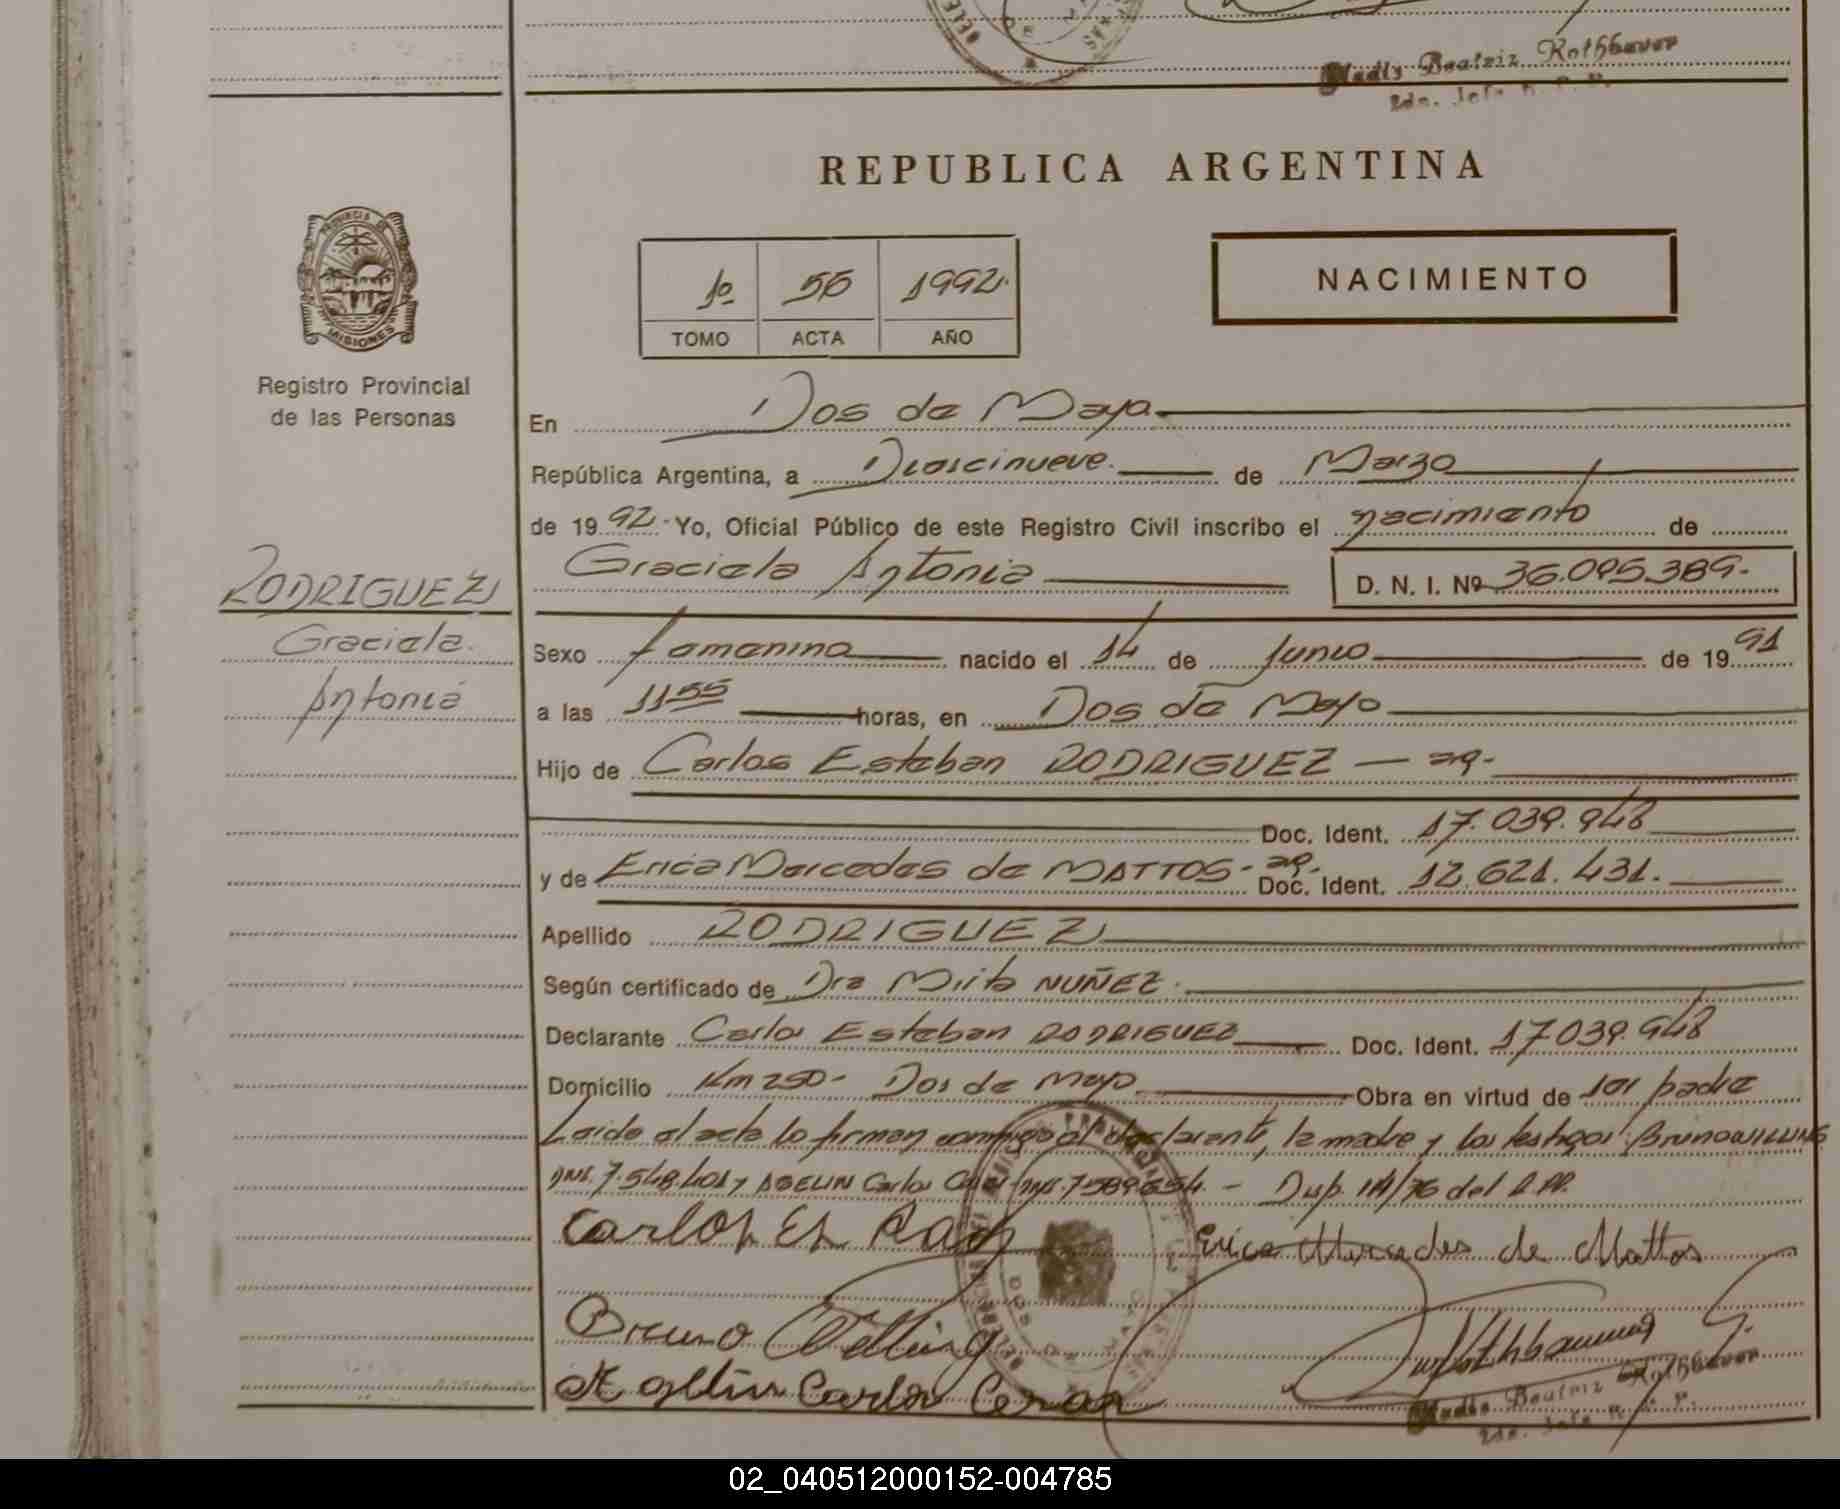 Gladis Beatriz Rothbauer
2da. Jefe R. P. P.
REPUBLICA ARGENTINA
PROVINCIA DE
MISIONES
Registro Provincial
de las Personas
1º 55 1992.
TOMO ACTA AÑO
NACIMIENTO
En Dos de Mayo
República Argentina, a Diescinueve. de Marzo
de 1992.- Yo, Oficial Público de este Registro Civil inscribo el nacimiento de
Graciela Antonia D. N. I. Nº 36.095.389.-
RODRIGUEZ
Graciela
Antonia
Sexo femenino nacido el 14 de junio de 1991
a las 11 55 horas, en Dos de Mayo
Hijo de Carlos Esteban RODRIGUEZ — ag.-
Doc. Ident. 17.039.948
y de Erica Mercedes de MATTOS - ag.- Doc. Ident. 12.621.431.
Apellido RODRIGUEZ
Según certificado de Dra Mirta NUÑEZ.
Declarante Carlos Esteban RODRIGUEZ Doc. Ident. 17.039.948
Domicilio Km 250- Dos de Mayo Obra en virtud de ser padre
Leída el acta lo firman conmigo el declarante, la madre y los testigos: Bruno WILLING
DNI. 7.548.401 y Carlos DNI. 7.589.654. - Disp. 114/76 del R.PP.
Carlos Es Rod
Erica Mercedes de Mattos
Bruno Welling
Carlos
Gladis Beatriz Rothbauer
2da. Jefe R. P. P.
02_040512000152-004785